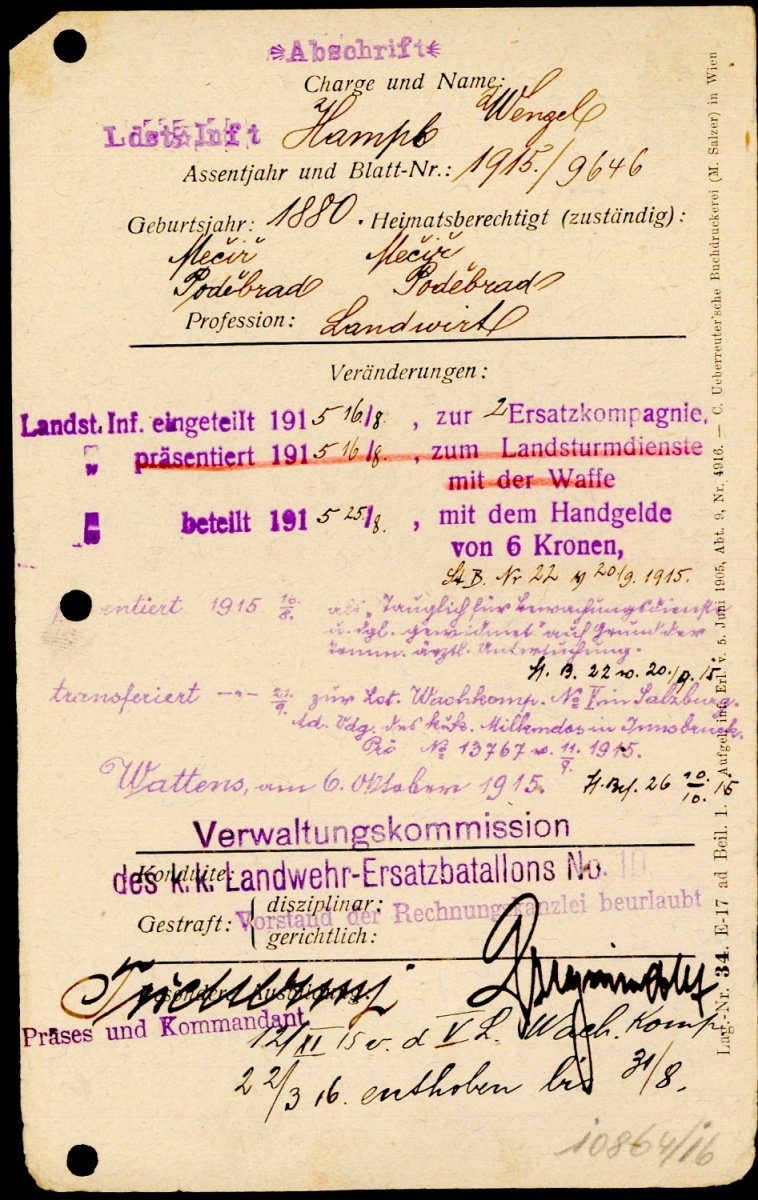 Abschrift
Charge und Name:
Ldst. Inft Hampl Wenzel
Assentjahr und Blatt-Nr.: 1915./9646
Geburtsjahr: 1880. Heimatsberechtigt (zuständig):
Mečíř Mečíř
Poděbrad Poděbrad
Profession: Landwirt
Veränderungen:
Landst. Inf. eingeteilt 1915 16./8. , zur 2 Ersatzkompagnie,
" präsentiert 1915 16/8. , zum Landsturmdienste
mit der Waffe
" beteilt 1915 25./8. , mit dem Handgelde
von 6 Kronen,
St. B. Nr 22 v 20/9. 1915.
1915 als "Tauglich für Bewachungsdienste
u. dgl. gewidmet" auf Grund der
komm. ärztl. Untersuchung.
St. B. 22 v. 20./9. 15
transferiert zur Lst. Wachkomp. No V in Salzburg.
des k.u.k. Milkmdos in Innsbruck.
No 13767 v. 11/9. 1915.
Wattens, am 6. Oktober 1915. 26 10/10. 15
Verwaltungskommission
Konduite:
des k. k. Landwehr-Ersatzbatallons No. 10
Gestraft: { disziplinar:
Vorstand der Rechnungskanzlei beurlaubt
gerichtlich:
Präses und Kommandant
12/XI 15 v. d V L. Wach. Komp
22/3 16. enthoben bis 31/8.
10864/16
Lag.-Nr. 34. E-17 ad Beil. 1. Aufgel. inf. Erl. v. 5. Juni 1905, Abt. 9, Nr. 4916. — C. Ueberreuter'sche Buchdruckerei (M. Salzer) in Wien